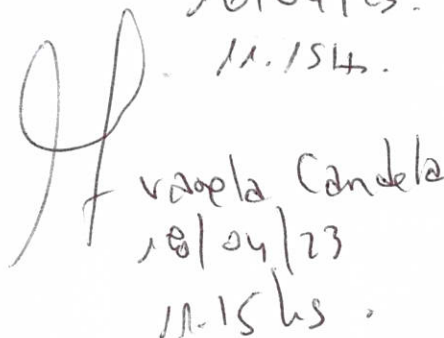 18/04/23.
11.15H.
Varela Candela
18/04/23
11.15 hs.